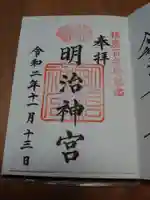 奉拝
明治神宮
令和二年十一月十三日